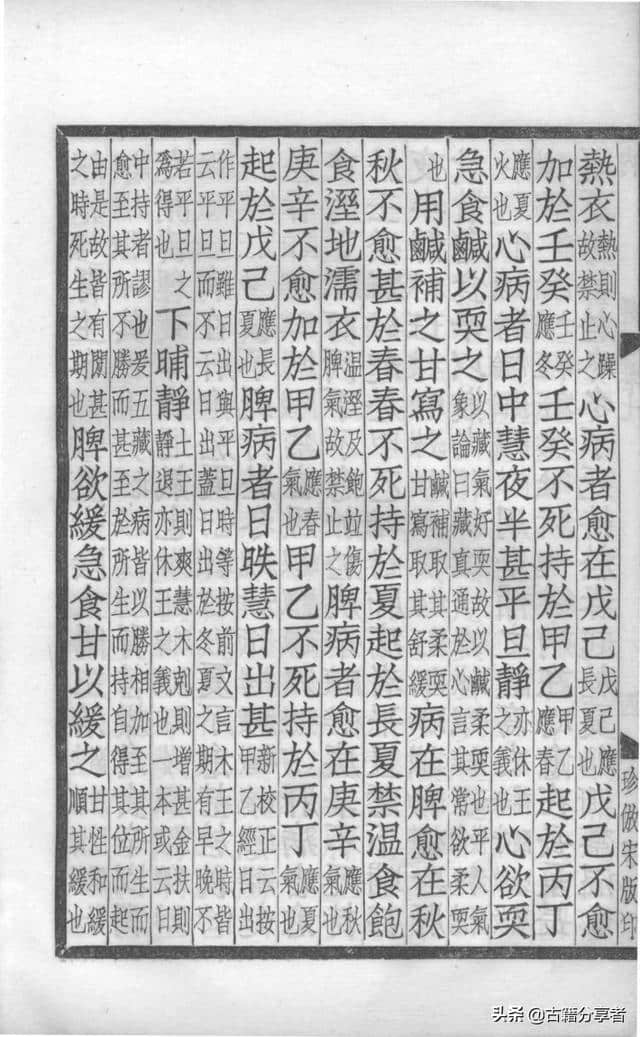 珍倣宋版印
熱衣熱則心躁故禁止之心病者愈在戊己戊己應長夏也戊己不愈
加於壬癸壬癸應冬壬癸不死持於甲乙甲乙應春起於丙丁
應夏火也心病者日中慧夜半甚平旦靜亦休王之義也心欲耎
急食鹹以耎之以藏氣好耎故以鹹柔耎也平人氣象論曰藏真通於心言其常欲柔耎
也用鹹補之甘寫之鹹補取其柔耎甘寫取其舒緩病在脾愈在秋
秋不愈甚於春春不死持於夏起於長夏禁温食飽
食溼地濡衣温溼及飽並傷脾氣故禁止之脾病者愈在庚辛應秋氣也
庚辛不愈加於甲乙應春氣也甲乙不死持於丙丁應夏氣也
起於戊己應長夏也脾病者日昳慧日出甚新校正云按甲乙經日出
作平旦雖日出與平旦時等按前文言木王之時皆云平旦而不云日出蓋日出於冬夏之期有早晚不
若平旦之爲得也下晡靜土王則爽慧木剋則增甚金扶則靜退亦休王之義也一本或云日
中持者謬也爰五藏之病皆以勝相加至其所生而愈至其所不勝而甚至於所生而持自得其位而起
由是故皆有閒甚之時死生之期也脾欲緩急食甘以緩之甘性和緩順其緩也
头条 @古籍分享者